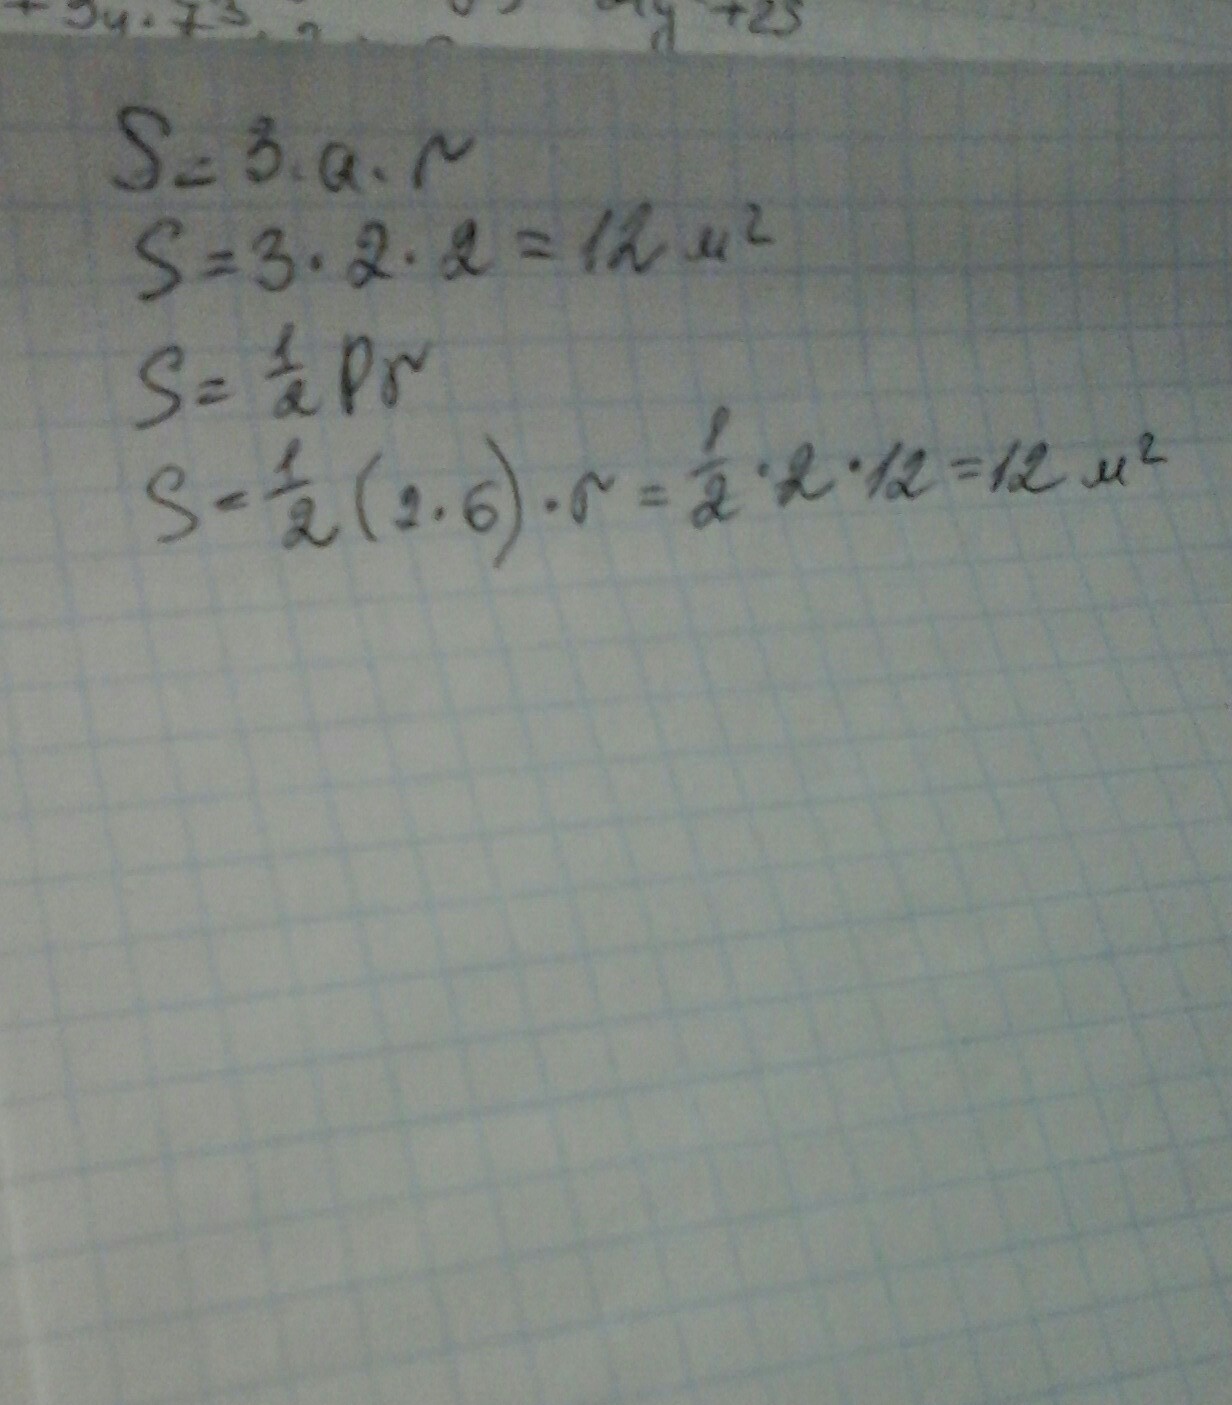 + 3y · 7³ y +25
S = 3 · a · r
S = 3 · 2 · 2 = 12 м²
S = 1/2 Pr
S = 1/2 (2 · 6) · r = 1/2 · 2 · 12 = 12 м²